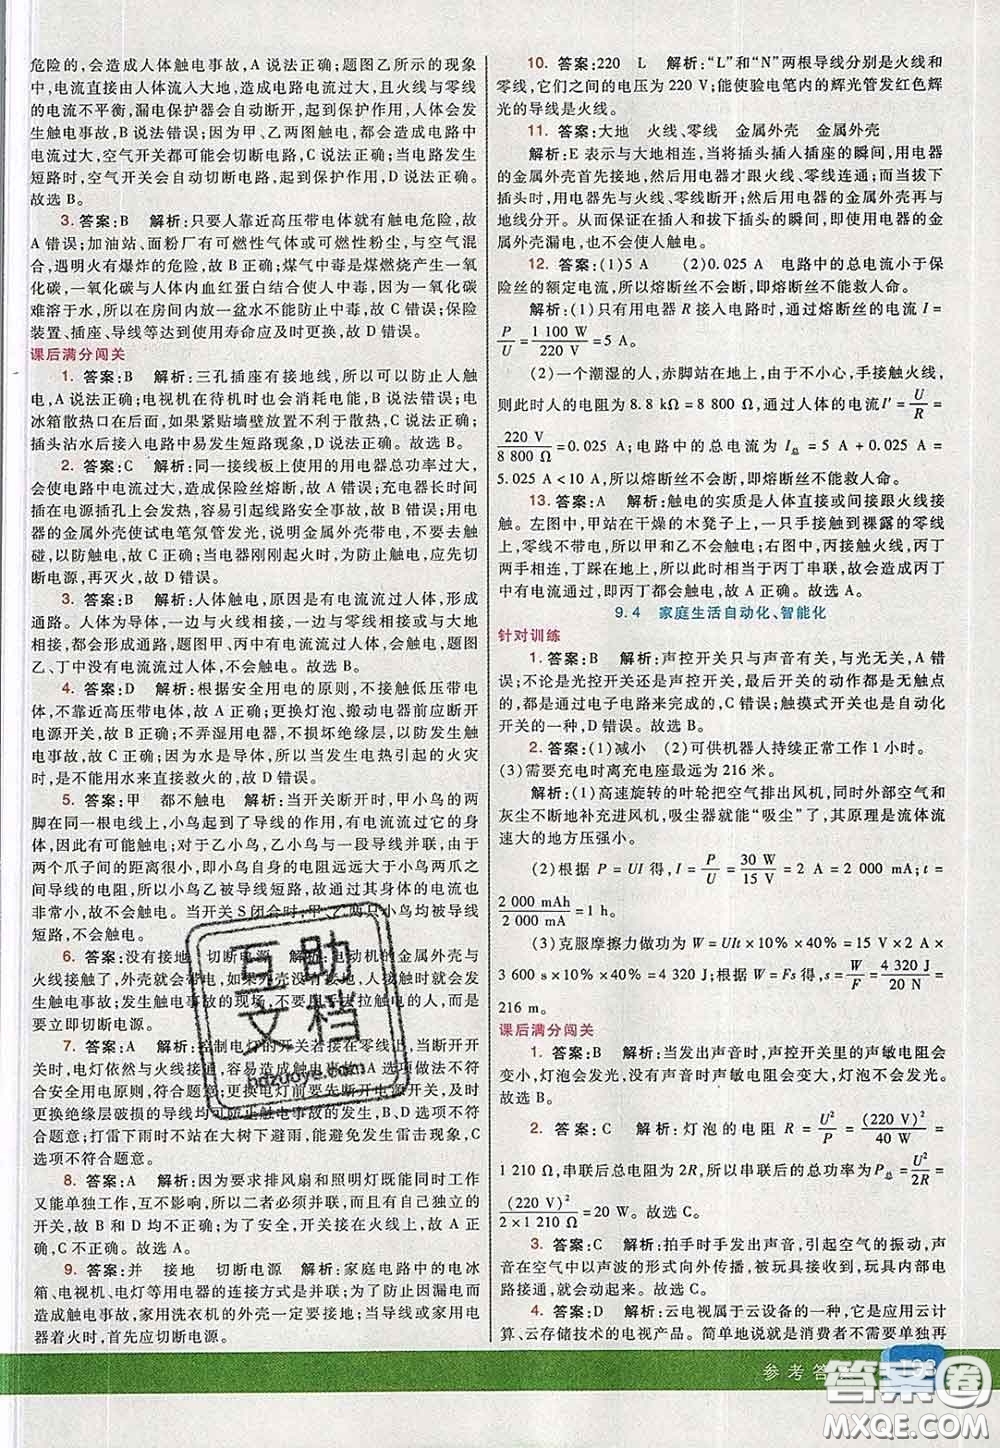 危险的,会造成人体触电事故,A 说法正确;题图乙所示的现象
中,电流直接由人体流入大地,会造成电路电流过大,且火线与零
线的电流不平衡,漏电保护器会自动断开,起到保护作用,人体会
发生触电事故,B 说法错误;因为甲、乙两图触电,都会造成电路中
电流过大,空气开关都可能会切断电路,C 说法正确;当电路发生
短路时,空气开关会自动切断电路,起到保护作用,D 说法正确。
故选 B。
3. 答案:B 解析:只要人靠近高压带电体就有触电危险,故
A 错误;加油站、面粉厂有可燃性气体或可燃性粉尘,与空气混合
后,遇明火有爆炸的危险,故 B 正确;煤气中毒是煤燃烧产生一氧
化碳,一氧化碳与人体内血红蛋白结合使人中毒,因一氧化碳极
难溶于水,所以在房间内放一盆水不能防止中毒,故 C 错误;保险
装置、插座、导线等达到使用寿命应及时更换,故 D 错误。
课后满分闯关
1. 答案:B 解析:三孔插座有接地线,所以可以防止人触
电,A 说法正确;电视机在待机时也会消耗电能,B 说法错误;电
冰箱散热口在后面,如果紧贴墙壁放置不利于散热,C 说法正确;
插头沾水后接入电路中易发生短路现象,D 说法正确。故选 B。
2. 答案:C 解析:同一接线板上使用的用电器总功率过大,
会使电路中电流过大,造成保险丝熔断,故 A 错误;充电器长时间
插在电源插孔上会发热,容易引起线路安全事故,故 B 错误;用电
器的金属外壳使试电笔氖管发光,说明金属外壳带电,不要去触
碰,以防触电,故 C 正确;当电器刚刚起火时,为防止触电,应先切
断电源,再灭火,故 D 错误。
3. 答案:B 解析:人体触电,原因是有电流流过人体,形成
通路。人体为导体,一边与火线相接,一边与零线或大地相
接,会形成通路,题图甲、丙中有电流流过人体,会触电;题图
乙、丁中没有电流流过人体,不会触电。故选 B。
4. 答案:D 解析:根据安全用电的原则,不接触低压带电
体,不靠近高压带电体,故 A 正确;更换灯泡、搬动电器前应断开
电源开关,故 B 正确;不弄湿用电器,不损坏绝缘层,以防发生触
电,故 C 正确;因为水是导体,所以对于因电热引起的火灾
时,是不能用水来直接救火的,故 D 错误。
5. 答案:甲 都不触电 解析:当开关断开时,甲小鸟的两
脚在同一根电线上,小鸟起了导线的作用,有电流流过它的身体,
因此有触电可能;对于乙小鸟,乙小鸟与一段导线并联,由于
两个爪子间的距离很小,即小鸟自身的电阻远远大于小鸟两爪之
间导线的电阻,所以小鸟乙被导线短路,所以流过其身体的电流也
非常小,故不会触电。当开关 S 闭合时,甲、乙两只小鸟均被导线
短路,不会触电。
6. 答案:没有接地 切断电源 解析:电动机的金属外壳与
火线接触了,外壳就会带电,如果外壳没有接地,人接触时,会发生
触电事故;发生触电事故的现场,不要用手去拉触电的人,而是
要立即切断电源。
7. 答案:A 解析:控制电灯的开关若接在零线上,当断开开
关时,电灯依然与火线连接,容易造成触电事故,A 选项做法不符
合安全用电原则,符合题意。更换电灯前要先断开电源开关,及时
更换绝缘层破损的导线均可防止触电事故的发生,B、D 选项不符
合题意;打雷下雨时不在大树下避雨,能避免发生雷击现象,C
选项不符合题意。
8. 答案:A 解析:因为要求排风扇和照明灯既能同时工作
又能单独工作,互不影响,所以二者必须并联,且有自己独立的
开关,故 B 和 D 均不正确;为了安全,开关接在火线上,故 A 正
确,C 不正确。故选 A。
9. 答案:并 接地 切断电源 解析:家庭电路中的电冰
箱、电视机、电灯等用电器的连接方式是并联;为了防止因漏电而
造成触电事故,家用洗衣机的外壳一定要接地;当导线或家用电
器着火时,首先应切断电源。
10. 答案:220 L 解析:“L”和“N”两根导线分别是火线和
零线,它们之间的电压为 220 V;能使验电笔内的辉光管发红色辉
光的导线是火线。
11. 答案:大地 火线、零线 金属外壳 金属外壳
解析:E 表示与大地相连,当将插头插入插座的瞬间,用电器
的金属外壳首先接地,然后用电器才跟火线、零线连通;而在拔出
插头时,用电器先与火线、零线断开,然后用电器的金属外壳再与
地线分开。从而保证在插入和拔下插头的瞬间,即使用电器的金
属外壳漏电,也不会使人触电。
12. 答案:(1)5 A (2)0.025 A 电路中的总电流小于保
险丝的额定电流,所以熔断丝不会断,即熔断丝不能救人命。
解析:(1)只有用电器 R 接入电路时,通过熔断丝的电流 I=
P/U=1 100 W/220 V=5 A。
(2)一个潮湿的人,赤脚站在地上,由于不小心,手接触火线,
则此时人的电阻为 8.8 kΩ=8 800 Ω,通过人体的电流 I′=U/R=
220 V/8 800 Ω=0.025 A;电路中的总电流为 I总=5 A+0.025 A=
5.025 A<10 A,所以熔断丝不会断,即熔断丝不能救人命。
13. 答案:A 解析:触电的实质是人体直接或间接跟火线接
触。左图中,甲站在干燥的木凳子上,一只手接触到裸露的零线
上,零线不带电,所以甲和乙不会触电;右图中,丙接触火线,丙丁
两手相连,丁踩在地上,所以相当于丙丁串联,此时会在丙丁中
有电流过,从而造成丙丁都触电。故 A 正确。故选 A。
9.4 家庭生活自动化、智能化
针对训练
1. 答案:B 解析:声控开关只与声音有关,与光无关,A 错
误;不论是光控开关还是声控开关,最后开关的动作都是无触点
的,都是通过电子电路来完成的,C 错误;触摸式开关也是自动化
开关的一种,D 错误。故选 B。
2. 答案:(1)减小 (2)可供机器人持续正常工作 1 小时。
(3)需要充电时离充电座最远为 216 米。
解析:(1)高速旋转的叶轮把空气排出风机,同时外部空气和
灰尘不断地补充进风机,吸尘器就能“吸尘”了,其原理是流体流
速大的地方压强小。
(2)根据 P=UI 得,I=P/U=30 W/15 V=2 A=2 000 mA;t=
2 000 mAh/2 000 mA=1 h。
(3)克服摩擦力做功为 W=UIt×10%×40%=15 V×2 A×
3 600 s×10%×40%=4 320 J;根据 W=Fs 得,s=W/F=4 320 J/20 N=
216 m。
课后满分闯关
1. 答案:B 解析:当发出声音时,声控开关里的声敏电阻会
变小,灯泡会发光;没有声音时声敏电阻会变大,灯泡不会发光。
故选 B。
2. 答案:C 解析:灯泡的电阻 R=U²/P=(220 V)²/40 W=
1 210 Ω,串联后总电阻为 2R,所以串联后的总功率为 P总=U²/2R=
(220 V)²/2×1 210 Ω=20 W。故选 C。
3. 答案:C 解析:拍手时手发出声音,引起空气的振动,声音
在空气中以声波的形式向外传播,被玩具接收到以后,玩具内部电
路接通。故选 C。
4. 答案:D 解析:云电视属于云设备的一种,它是应用云计
算、云存储技术的电视产品。简单地说就是消费者不需要单独再
互助
文档
hdzuoye.com
参考答案
答案卷
MXQE.COM